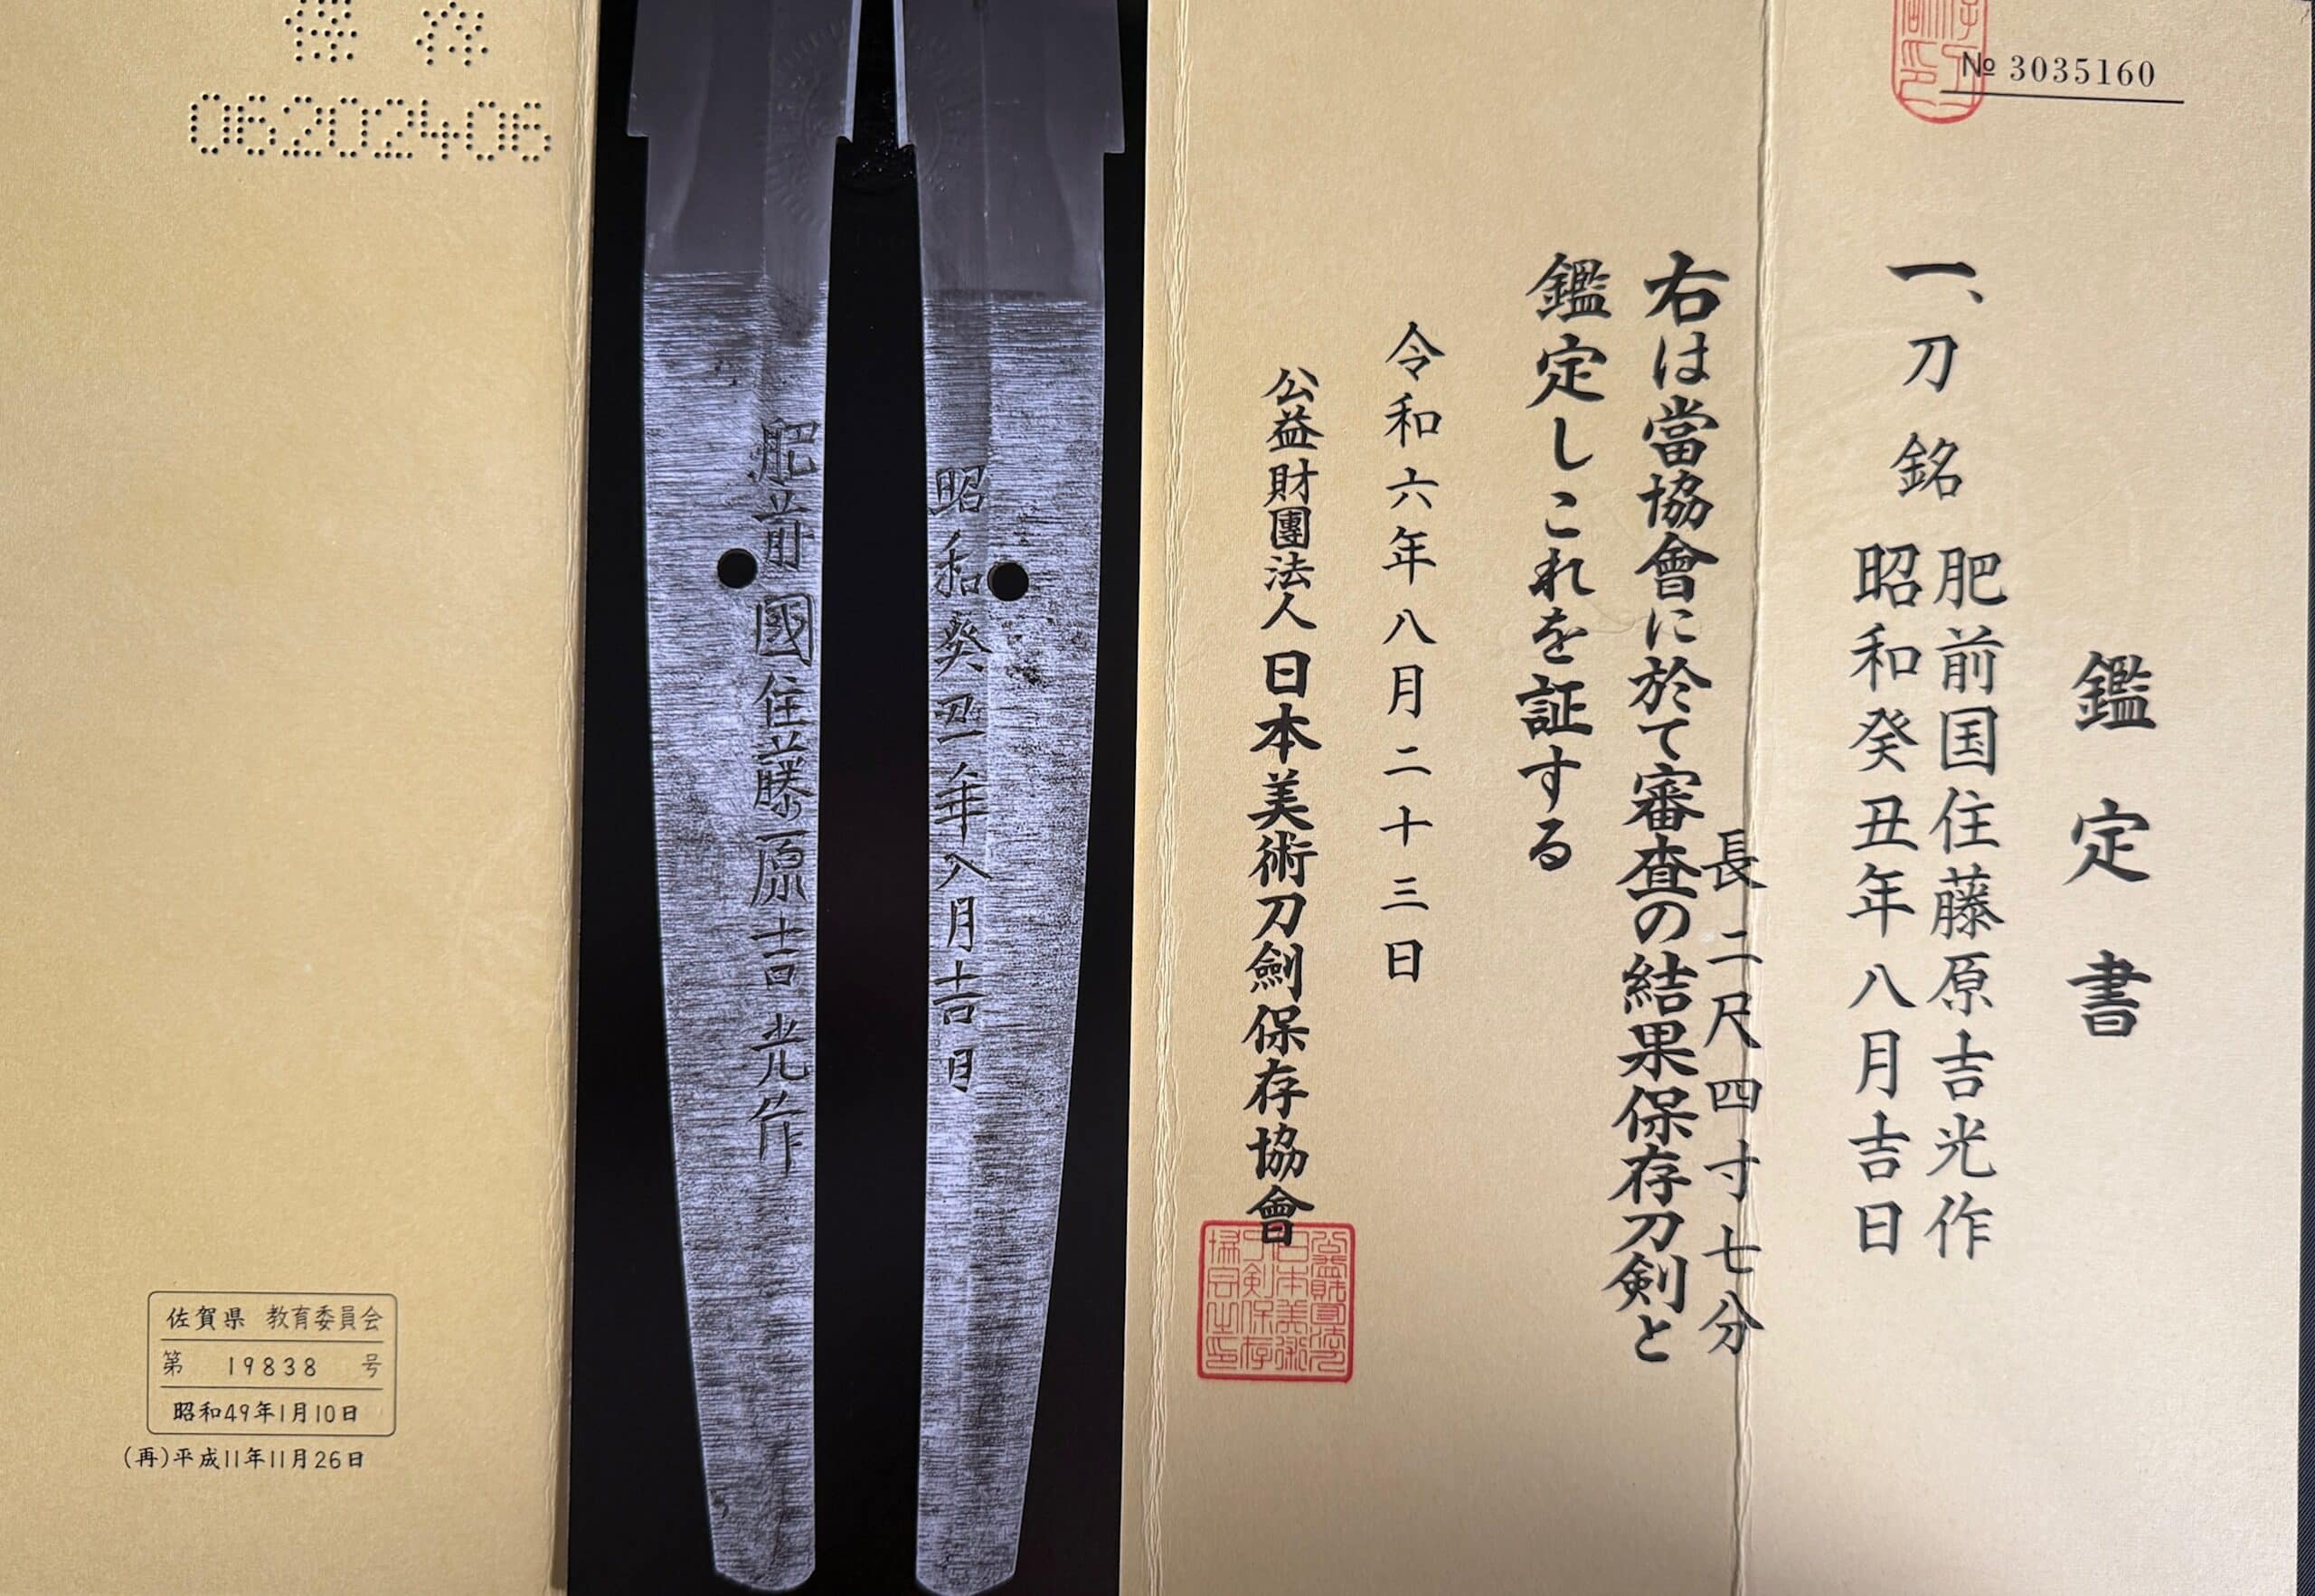 № 3035160
鑑定書
一、刀 銘 肥前国住藤原吉光作
昭和癸丑年八月吉日
長 二尺四寸七分
右は當協會に於て審査の結果保存刀剣と
鑑定しこれを証する
令和六年八月二十三日
公益財團法人 日本美術刀劍保存協會
昭和癸丑年八月吉日
肥前國住藤原吉光作
保存
06202406
佐賀県 教育委員会
第 19838 号
昭和49年1月10日
(再)平成11年11月26日